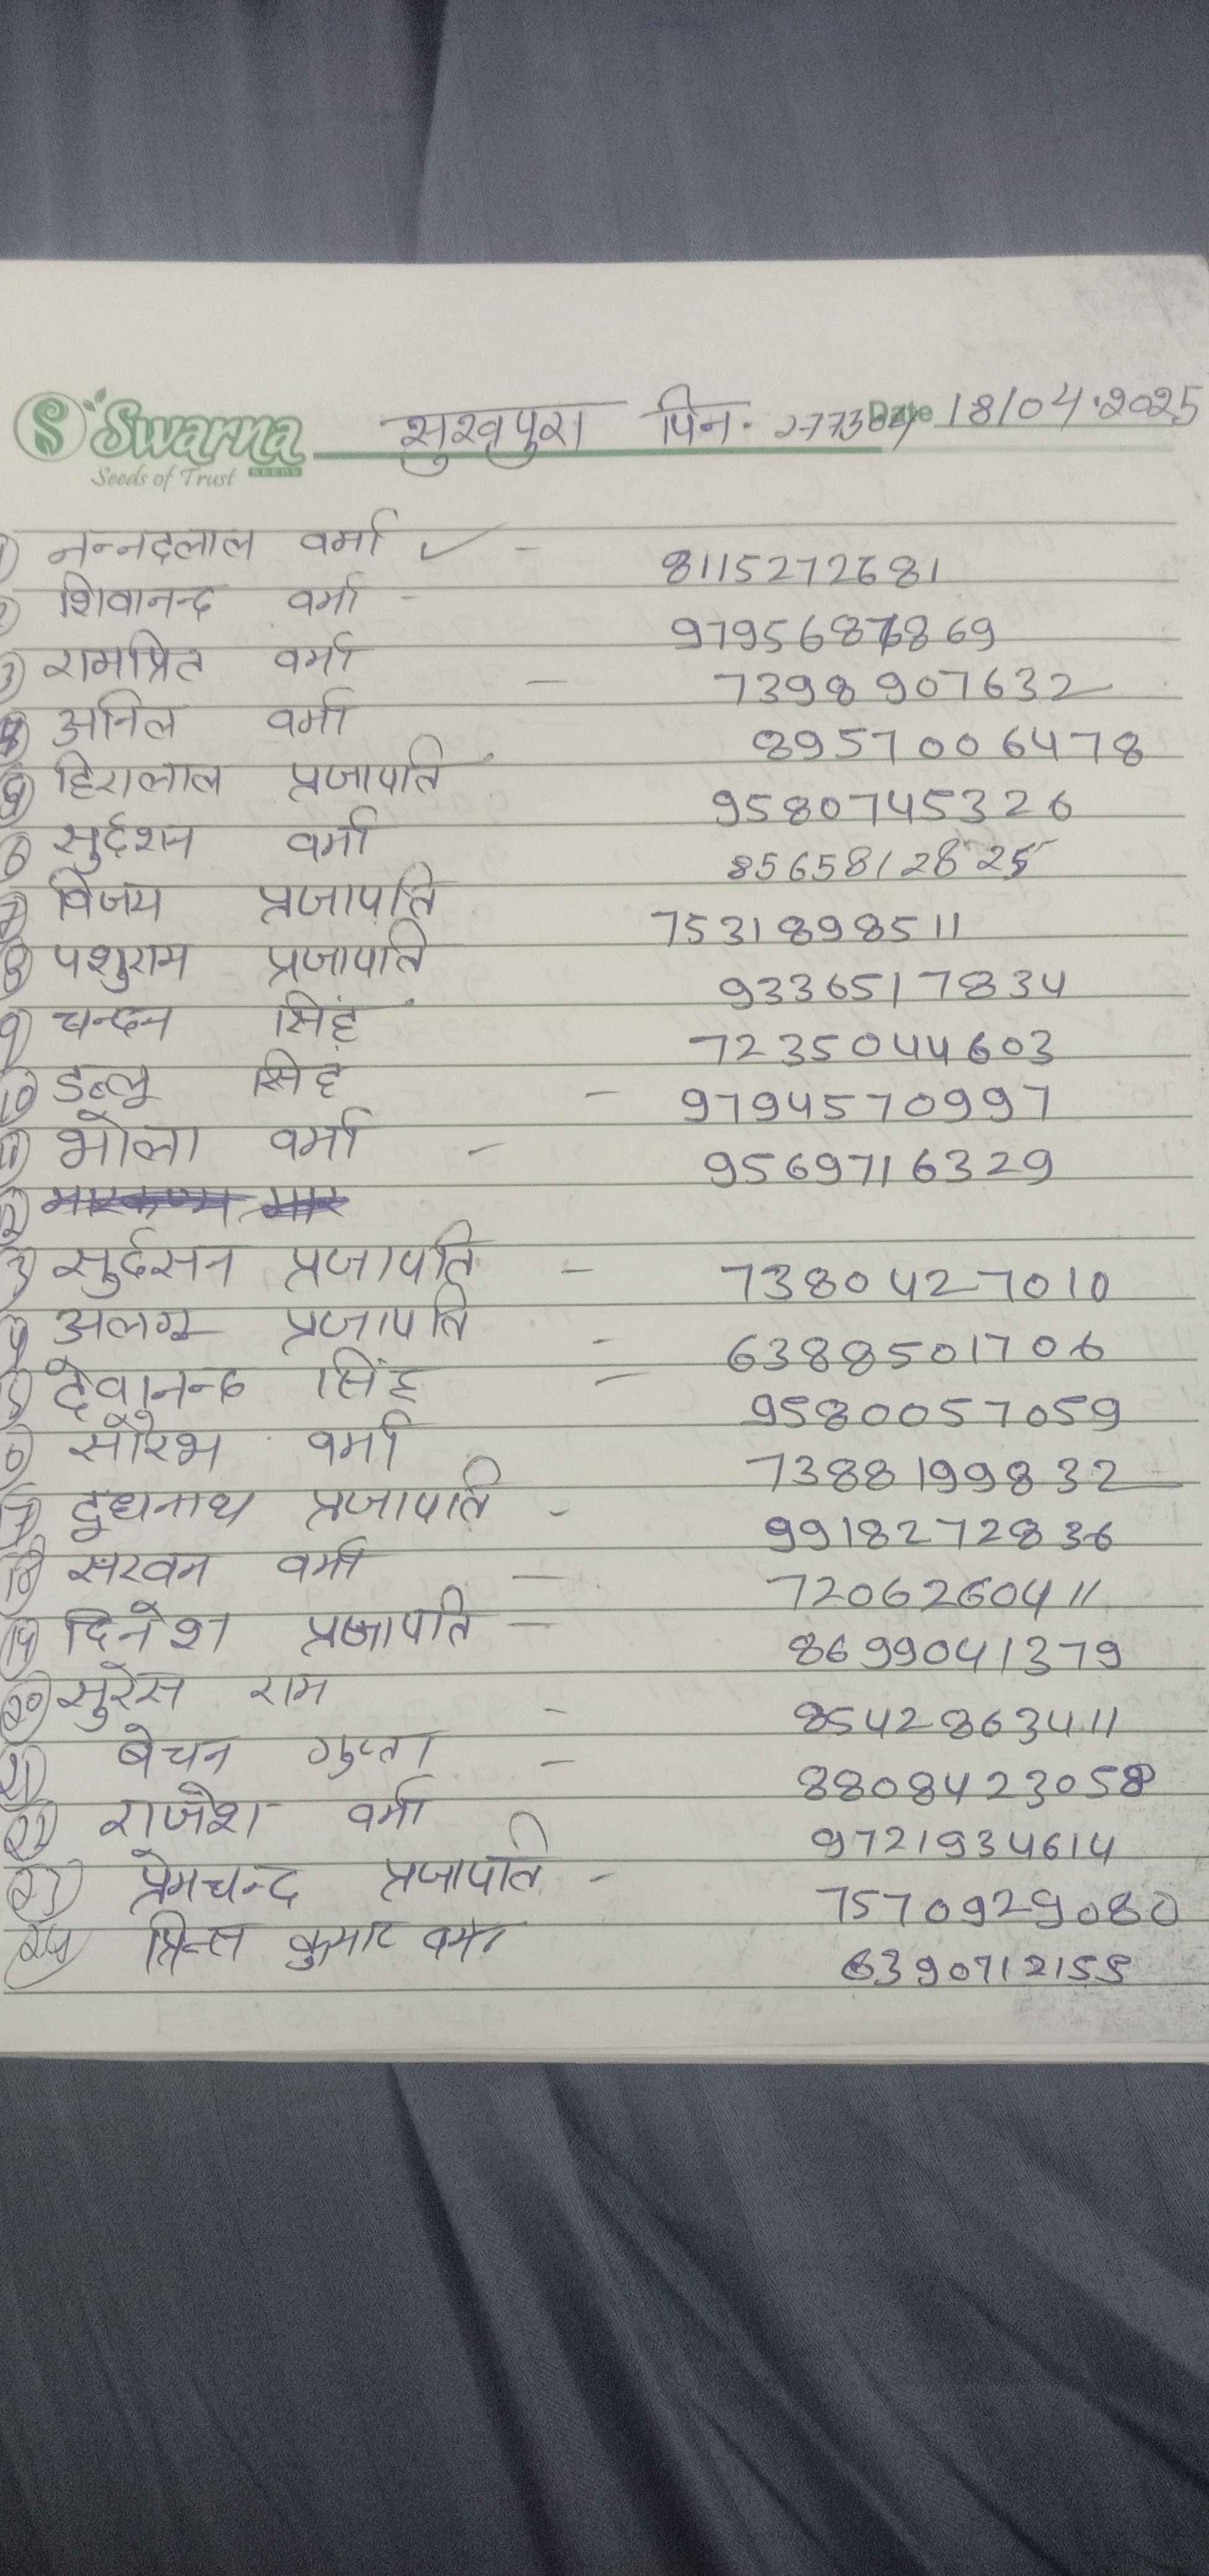 Swarna
Seeds of Trust SEEDS
सुखपुरा पिन. 277304 Date 18/04.2025
1) नन्नदलाल वर्मा ✓ - 8115272681
2) शिवानन्द वर्मा - 9795687869
3) रामप्रित वर्मा - 7398907632
4) अनिल वर्मा 8957006478
5) हिरालाल प्रजापति 9580745326
6) सुर्दशन वर्मा 8565812825
7) विजय प्रजापति 7531898511
8) पशुराम प्रजापति 9336517834
9) चन्दन सिंह 7235044603
10) डब्लू सिंह - 9794570997
11) भोला वर्मा - 9569716329
12)
3) सुर्दसन प्रजापति - 7380427010
4) अलगू प्रजापति = 6388501706
5) देवानन्द सिंह = 9580057059
6) सौरभ वर्मा 7388199832
7) दूधनाथ प्रजापति - 9918272836
18) सरवन वर्मा - 7206260411
19) दिनेश प्रजापति - 8699041379
20) सुरेस राम - 8542863411
21) बेचन गुप्ता - 8808423058
22) राजेश वर्मा 9721934614
23) प्रेमचन्द प्रजापति - 7570929080
24) प्रिन्स कुमार वर्मा 6390712155